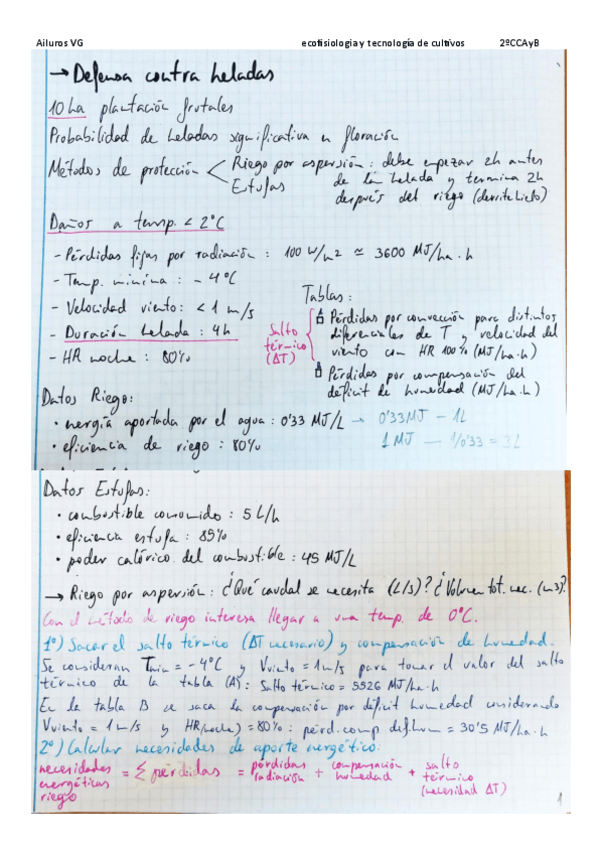 Ailuros VG ecofisiologia y tecnología de cultivos 2ºCCAyB
→ Defensa contra heladas
10 ha plantación frutales
Probabilidad de heladas significativa en floración
Métodos de protección < Riego por aspersión: debe empezar 2h antes
de la helada y termina 2h
después del riego (derrite hielo)
Estufas
Daños a temp. < 2ºC
- Pérdidas fijas por radiación : 100 W/m2 ≃ 3600 MJ/ha·h
- Temp. mínima : - 4ºC
- Velocidad viento: < 1 m/s
- Duración helada : 4h
- HR noche : 80%
Salto térmico (ΔT)
Tablas:
A Pérdidas por convección para distintos
diferenciales de T y velocidad del
viento con HR 100% (MJ/ha·h)
B Pérdidas por compensación del
déficit de humedad (MJ/ha·h)
Datos Riego:
• energía aportada por el agua : 0'33 MJ/L → 0'33MJ - 1L
• eficiencia de riego : 80% 1 MJ — 1/0'33 = 3L
Datos Estufas:
• combustible consumido : 5 L/h
• eficiencia estufa : 85%
• poder calórico del combustible : 45 MJ/L
→ Riego por aspersión : ¿Qué caudal se necesita (L/s)? ¿Volumen tot. nec. (m3)?
Con el método de riego interesa llegar a una temp. de 0ºC.
1º) Sacar el salto térmico (ΔT necesario) y compensación de humedad.
Se consideran Tmin = - 4ºC y Vviento = 1 m/s para tomar el valor del salto
térmico de la tabla (A) : Salto térmico = 5526 MJ/ha·h
En la tabla B se saca la compensación por déficit humedad considerando
Vviento = 1 m/s y HR(noche) = 80% : pérd. comp def. hum = 30'5 MJ/ha·h
2º) Calcular necesidades de aporte energético:
necesidades energéticas riego = Σ pérdidas = pérdidas radiación + compensación humedad + salto térmico (necesidad ΔT)
1